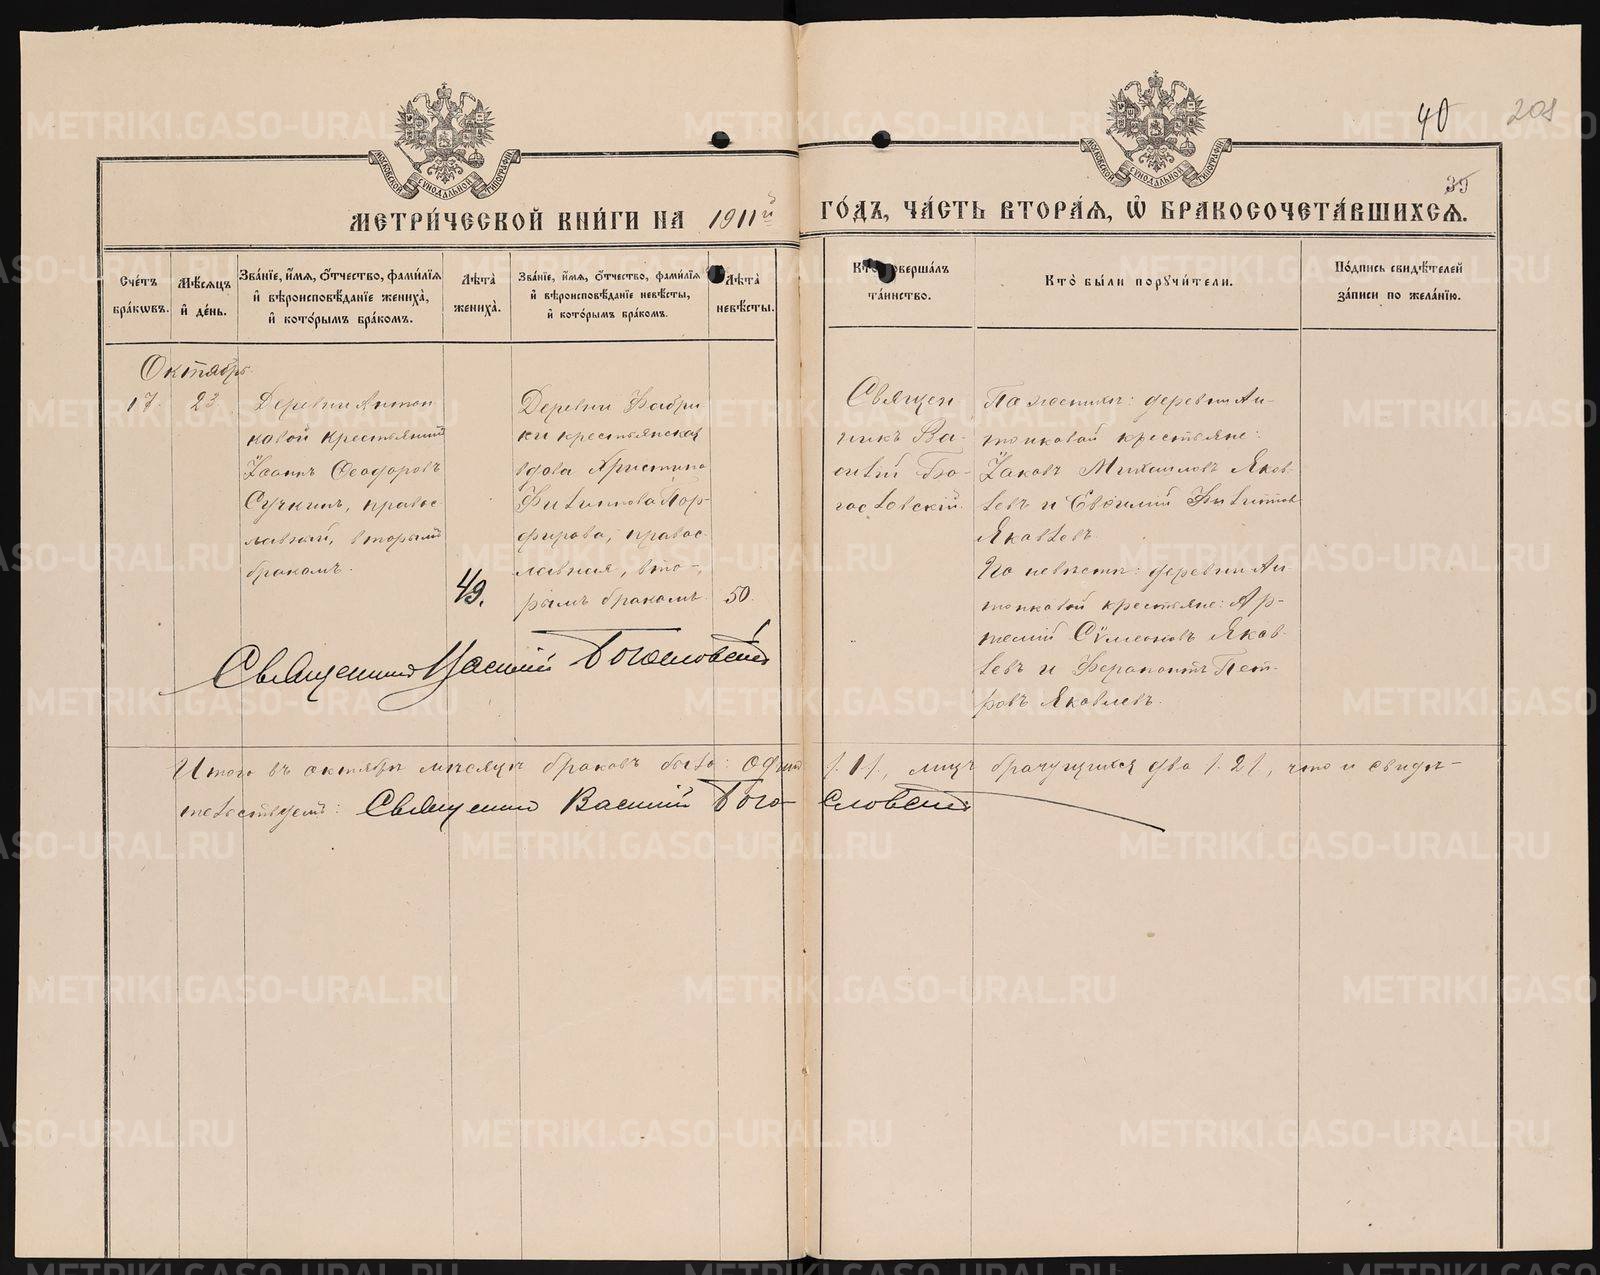 40 201
35
МОСКОВСКОЙ СѴНОДАЛЬНОЙ ТИПОГРАФІИ
МОСКОВСКОЙ СѴНОДАЛЬНОЙ ТИПОГРАФІИ
МЕТРИ́ЧЕСКОЙ КНИ́ГИ НА 1911й ГО́ДЪ, ЧА́СТЬ ВТОРА́Я, Ѡ БРАКОСОЧЕТА́ВШИХСЯ.
Сче́тъ
бра́кѡвъ.
Мѣ́сяцъ
и҆ де́нь.
Зва́нїе, и҆́мя, ѻ҆́тчество, фами́лїя
и҆ вѣроисповѣ́данїе жениха̀,
и҆ кото́рымъ бра́комъ.
Лѣ́та
жениха̀.
Зва́нїе, и҆́мя, ѻ҆́тчество, фами́лїя
и҆ вѣроисповѣ́данїе невѣ́сты,
и҆ кото́рымъ бра́комъ.
Лѣ́та
невѣ́сты.
Кто̀ соверша́лъ
та́инство.
Кто̀ бы́ли порꙋчи́тели.
По́дпись свидѣ́телей
за́писи по жела́нїю.
Октябрь
17.
23
Деревни Антон
ковой крестьянинъ
Іоаннъ Ѳеодоровъ
Сучкинъ, правос
лавный, вторымъ
бракомъ.
49.
Деревни Фабри
ки крестьянская
вдова Христина
Филиппова Пор-
фирова, правос
лавная, вто-
рымъ бракомъ.
50.
Священ
никъ Ва-
силій Бо-
гословскій.
По женихѣ: деревни Ан-
тонковой крестьяне:
Іаковъ Михаиловъ Яков-
левъ и Евѳимій Филиппов
Яковлевъ.
По невѣстѣ: деревни Ан-
тонковой крестьяне: Ар-
темій Сѵмеоновъ Яков-
левъ и Ферапонтъ Пет-
ровъ Яковлевъ.
Священникъ Василій Богословскій
Итого въ октябрѣ мѣсяцѣ браковъ было: одинъ /.1/., лицъ брачущихся два /.2/, что и свидѣ-
тельствуетъ: Священник Василій Бого-словскій
METRIKI.GASO-URAL.RU